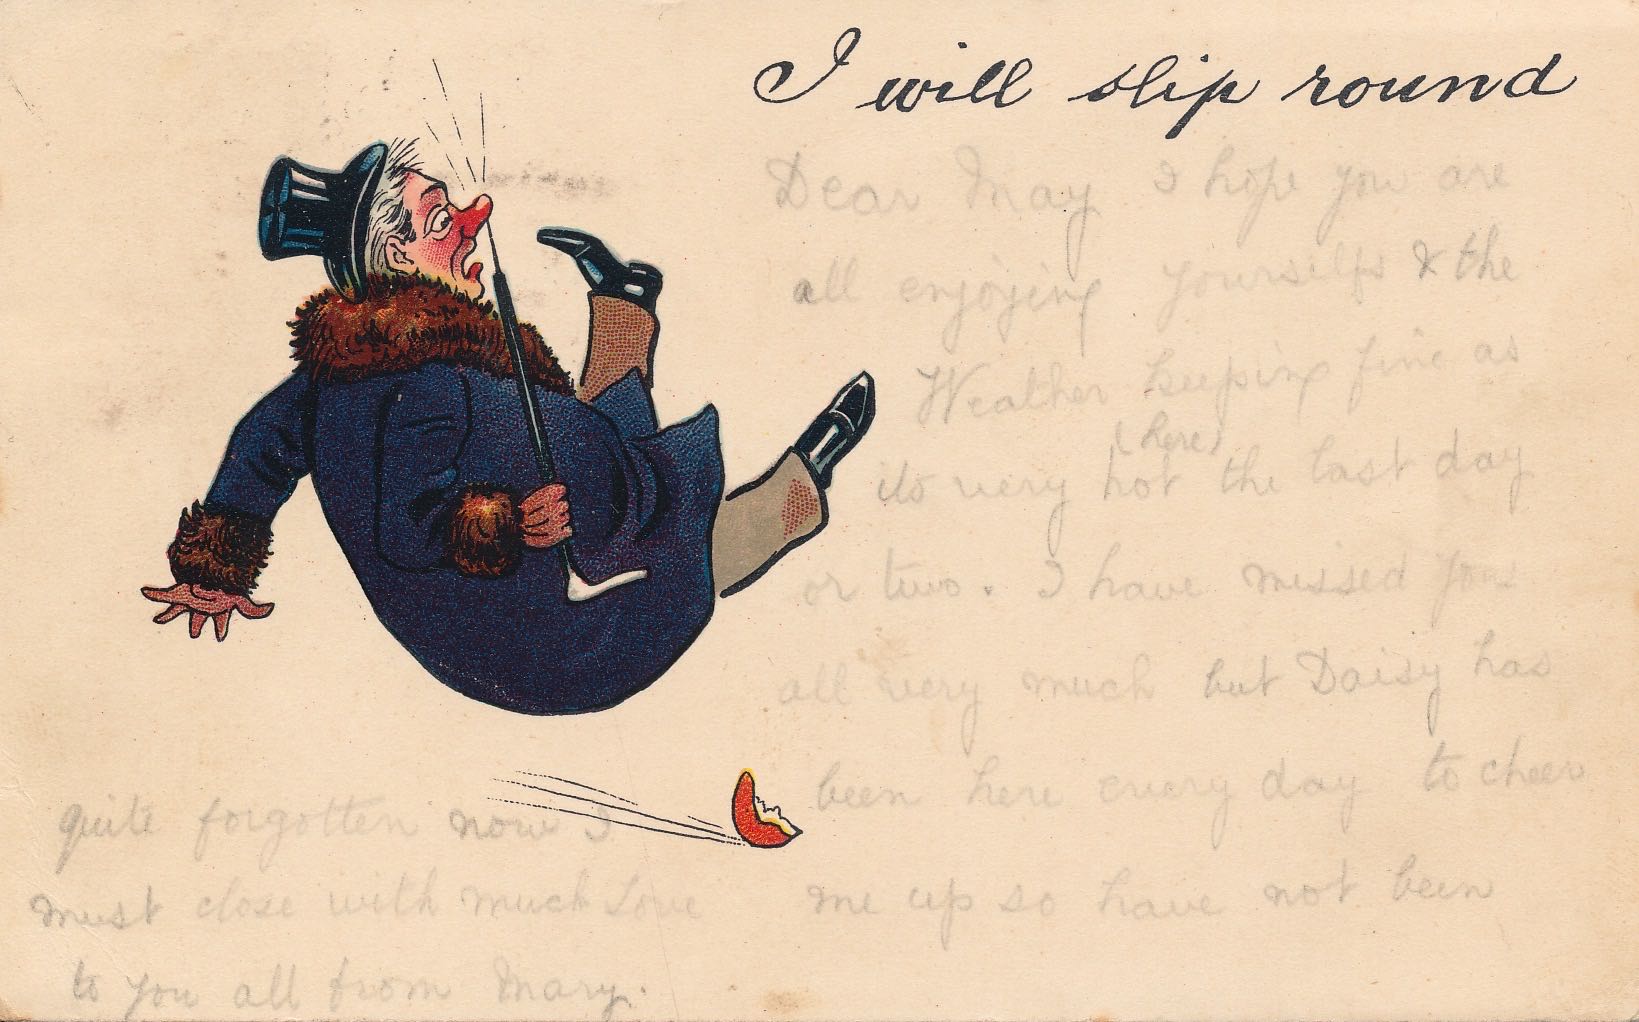 I will slip round
Dear May I hope you are
all enjoying yourselfs & the
Weather keeping fine as
(here)
its very hot the last day
or two. I have missed you
all very much but Daisy has
been here every day to cheer
me up so have not been
quite forgotten now I
must close with much Love
to you all from Mary.